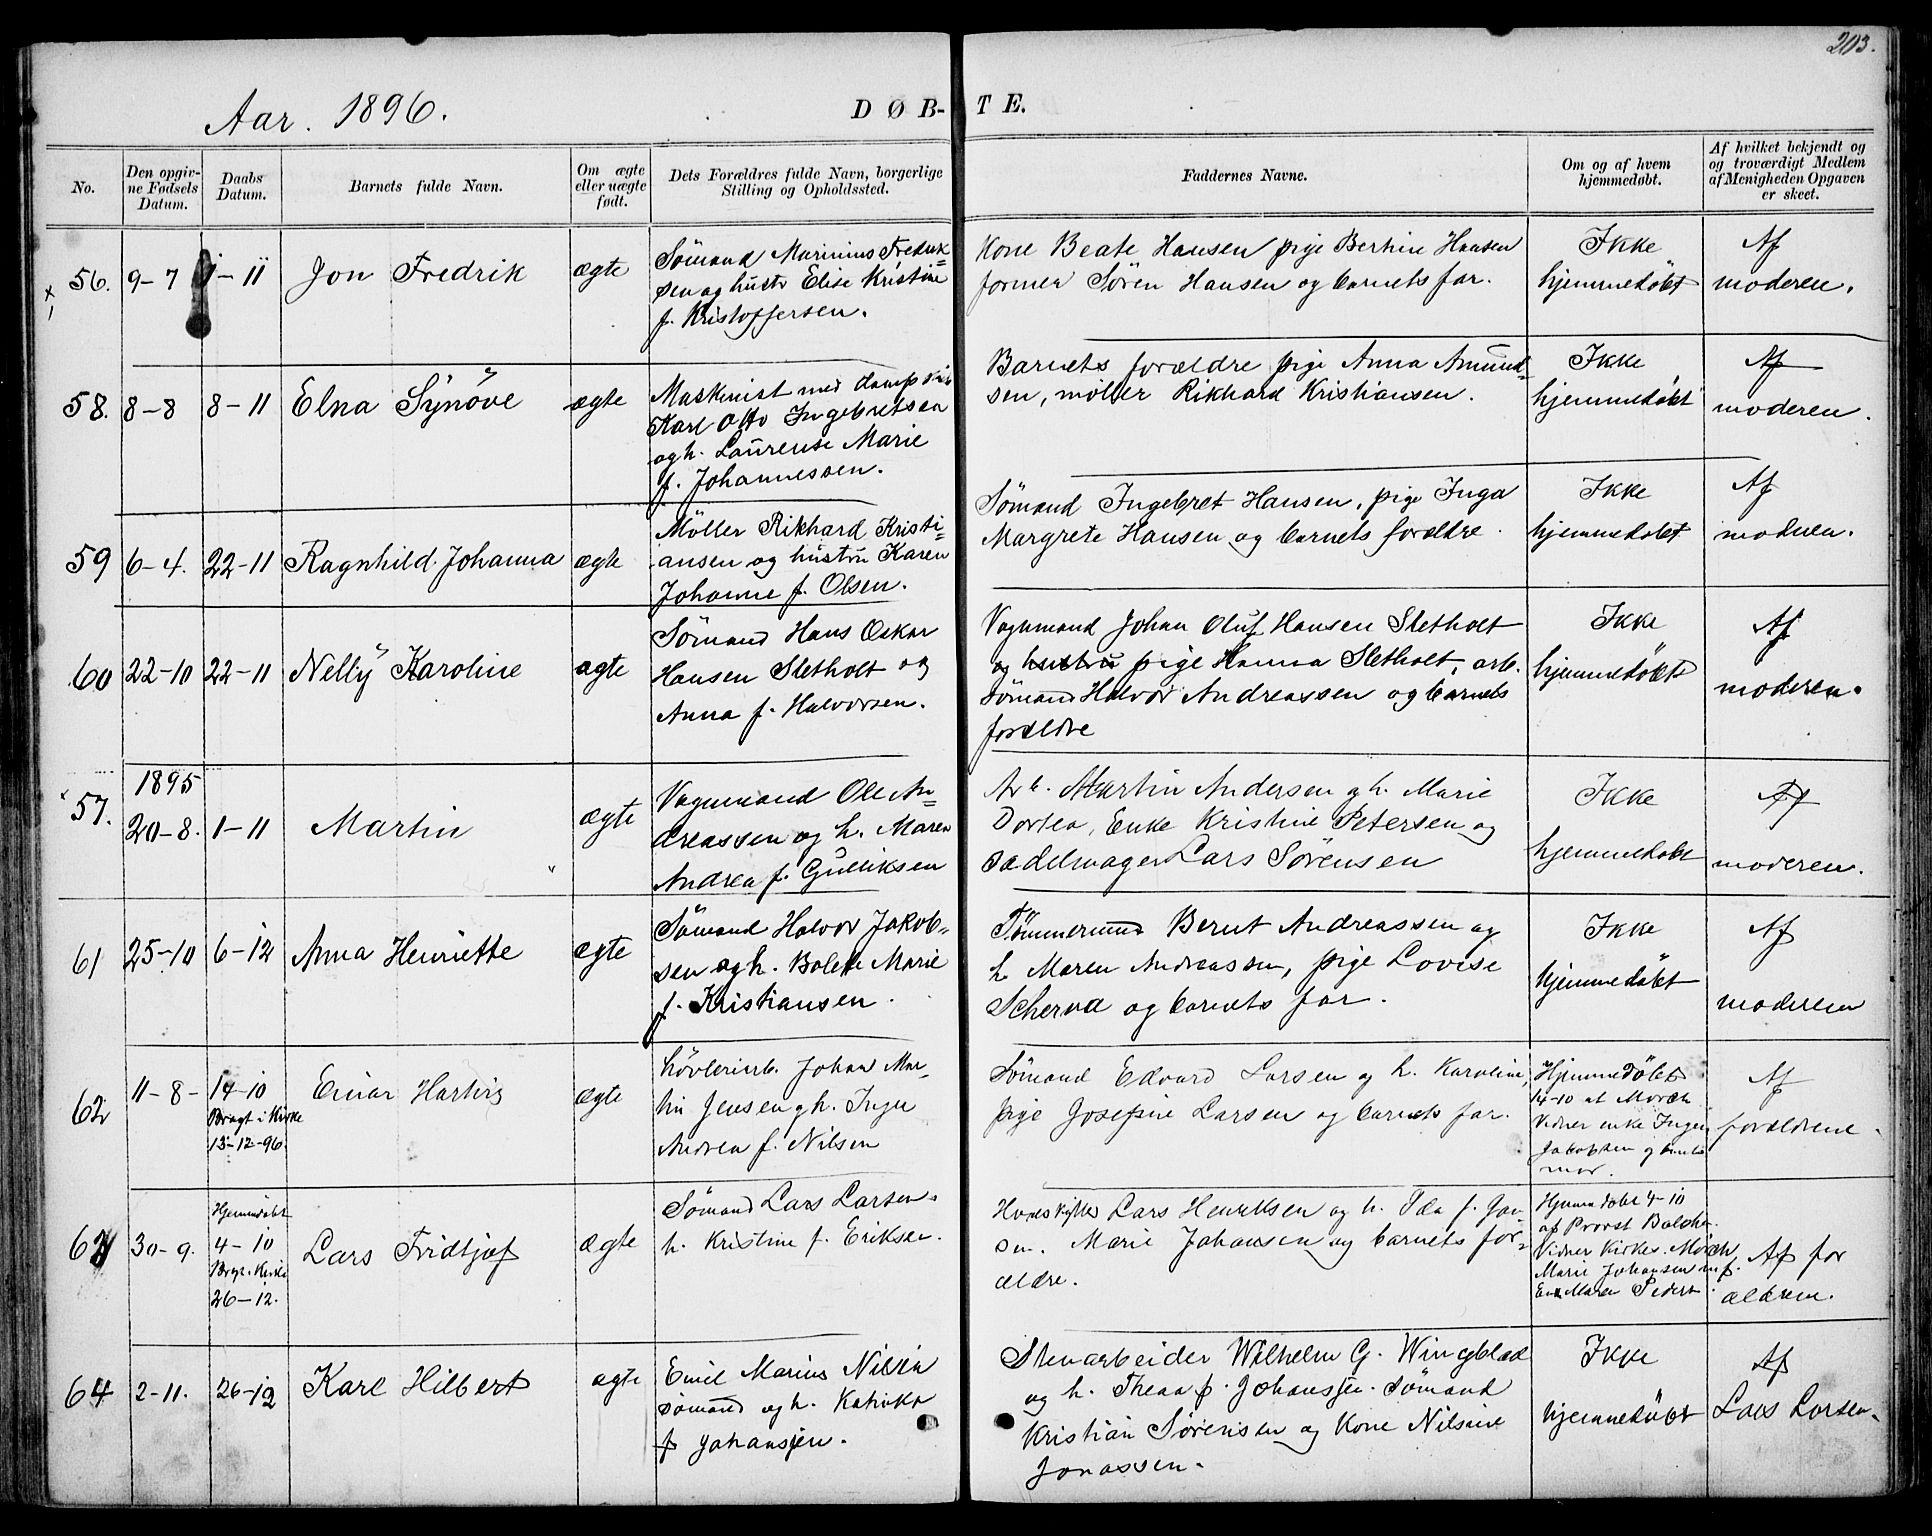 203.
Aar. 1896.
DØB-
TE.
No.
Den opgiv-
ne Fødsels
Datum.
Daabs
Datum.
Barnets fulde Navn.
Om ægte
eller uægte
født.
Dets Forældres fulde Navn, borgerlige
Stilling og Opholdssted.
Faddernes Navne.
Om og af hvem
hjemmedøbt.
Af hvilket bekjendt og
og troværdigt Medlem
af Menigheden Opgaven
er skeet.
56.
9-7
1-11
Jon Fredrik
ægte
Sømand Marinius Fredrik=
sen og hustr Elise Kristine
f. Kristoffersen.
Kone Beate Hansen pige Berthine Hansen
former Søren Hansen og barnets far.
Ikke
hjemmedøbt
Af
moderen.
58.
8-8
8-11
Elna Synöve
ægte
Maskinist med dampskib
Karl Otto Ingebretsen
og h. Laurense Marie
f. Johannessen.
Barnets forældre pige Anna Amund=
sen, møller Rikhard Kristiansen.
Ikke
hjemmedøbt
Af
moderen.
59
6-4.
22-11
Ragnhild Johanna
ægte
Møller Rikhard Kristi=
ansen og hustru Karen
Johanne f. Olsen.
Sømand Ingebret Hansen, pige Inga
Margrete Hansen og barnets forældre.
Ikke
hjemmedøbt
Af
moderen.
60
22-10
22-11
Nelly Karoline
ægte
Sømand Hans Oskar
Hansen Sletholt og
Anna f. Halvorsen.
Vognmand Johan Oluf Hansen Sletholt
og hustru pige Hanna Sletholt, arb.
Sømand Halvor Andreassen og barnets
forældre
Ikke
hjemmedøbt
Af
moderen.
57.
1895
20-8.
1-11
Martin
ægte
Vognmand Ole An=
dreassen og h. Maren
Andrea f. Gulliksen
Arb. Martin Andersen og h. Marie
Dortea, Enke Kristine Petersen og
sadelmager Lars Sørensen
Ikke
hjemmedøbt
Af
moderen.
61
25-10
6-12
Anna Henriette
ægte
Sømand Halvor Jakob=
sen og h. Bolette Marie
f. Kristiansen.
Tømmermand Bernt Andreassen og
h. Maren Andreassen, pige Lovise
Scherva og barnets far.
Ikke
hjemmedøbt
Af
moderen
62
11-8-
14-10
Bragt i Kirke
13-12-96.
Einar Hartvig
ægte
Høvleriarb. Johan Mar-
tin Jensen og h. Inga
Andrea f. Nilsen
Sømand Edvard Larsen og h. Karoline,
pige Josefine Larsen og barnets far.
Hjemmedøbt
14-10 af Mørch
Vidner enke Inger
Jakobsen og barnets
mor.
Af
forældrene.
63
30-9.
Hjemmedøbt
4-10
Bragt i Kirke
26-12.
Lars Fridtjof
ægte
Sømand Lars Larsen.
h. Kristine f. Eriksen.
Lars Henriksen og h. Ida f. Jan
sen. Marie Johansen og barnets for=
ældre.
Hjemmedøbt 4-10
af Provst Balche.
Vidner Kirkes. Mørch
Marie Johansen
Enke Maren Peders
Af for
ældrene.
64
2-11.
26-12
Karl Hilbert
ægte
Emil Marius Nilsen
sømand og h. Katinka
f Johansjen.
Stenarbeider Wilhelm G. Wingblad
og h. Thea f. Johansjen. sømand
Kristian Sørensen og Kone Nilsine
Jonassen.
Ikke
hjemmedøbt
Af
Lars Larsen.